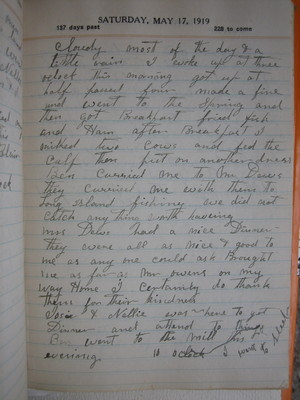 SATURDAY, MAY 17, 1919
137 days past 228 to come
Cloudy most of the day & a
little rain I woke up at three
oclock this morning got up at
half paast four made a fire
and went to the Spring and
then got Breakfast fried fish
and Ham after Breakfast I
milked two Cows and fed the
Calf then put on another dress
Ben Carried me to Mr Dews
they Carried me with them to
Long Island fishing we did not
Catch any thing worth haveing
Mrs Dews had a nice Dinner
they were all as nice & good to
me as any one could ask Brought
me as far as Mr Owens on my
way Home I Certainly do thank
them for their kindness
Josie & Nellie was here to got
Dinner and attend to things
Ben went to the Mill this
evening 10 oclock I went to sleep